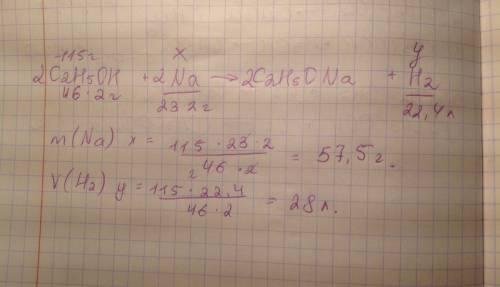 115г x y
2C2H5OH + 2Na → 2C2H5ONa + H2
46·2г 23 2г 22,4л
m(Na) x = 115·23·2 / 46·2 = 57,5г.
V(H2) y = 115·22,4 / 46·2 = 28л.